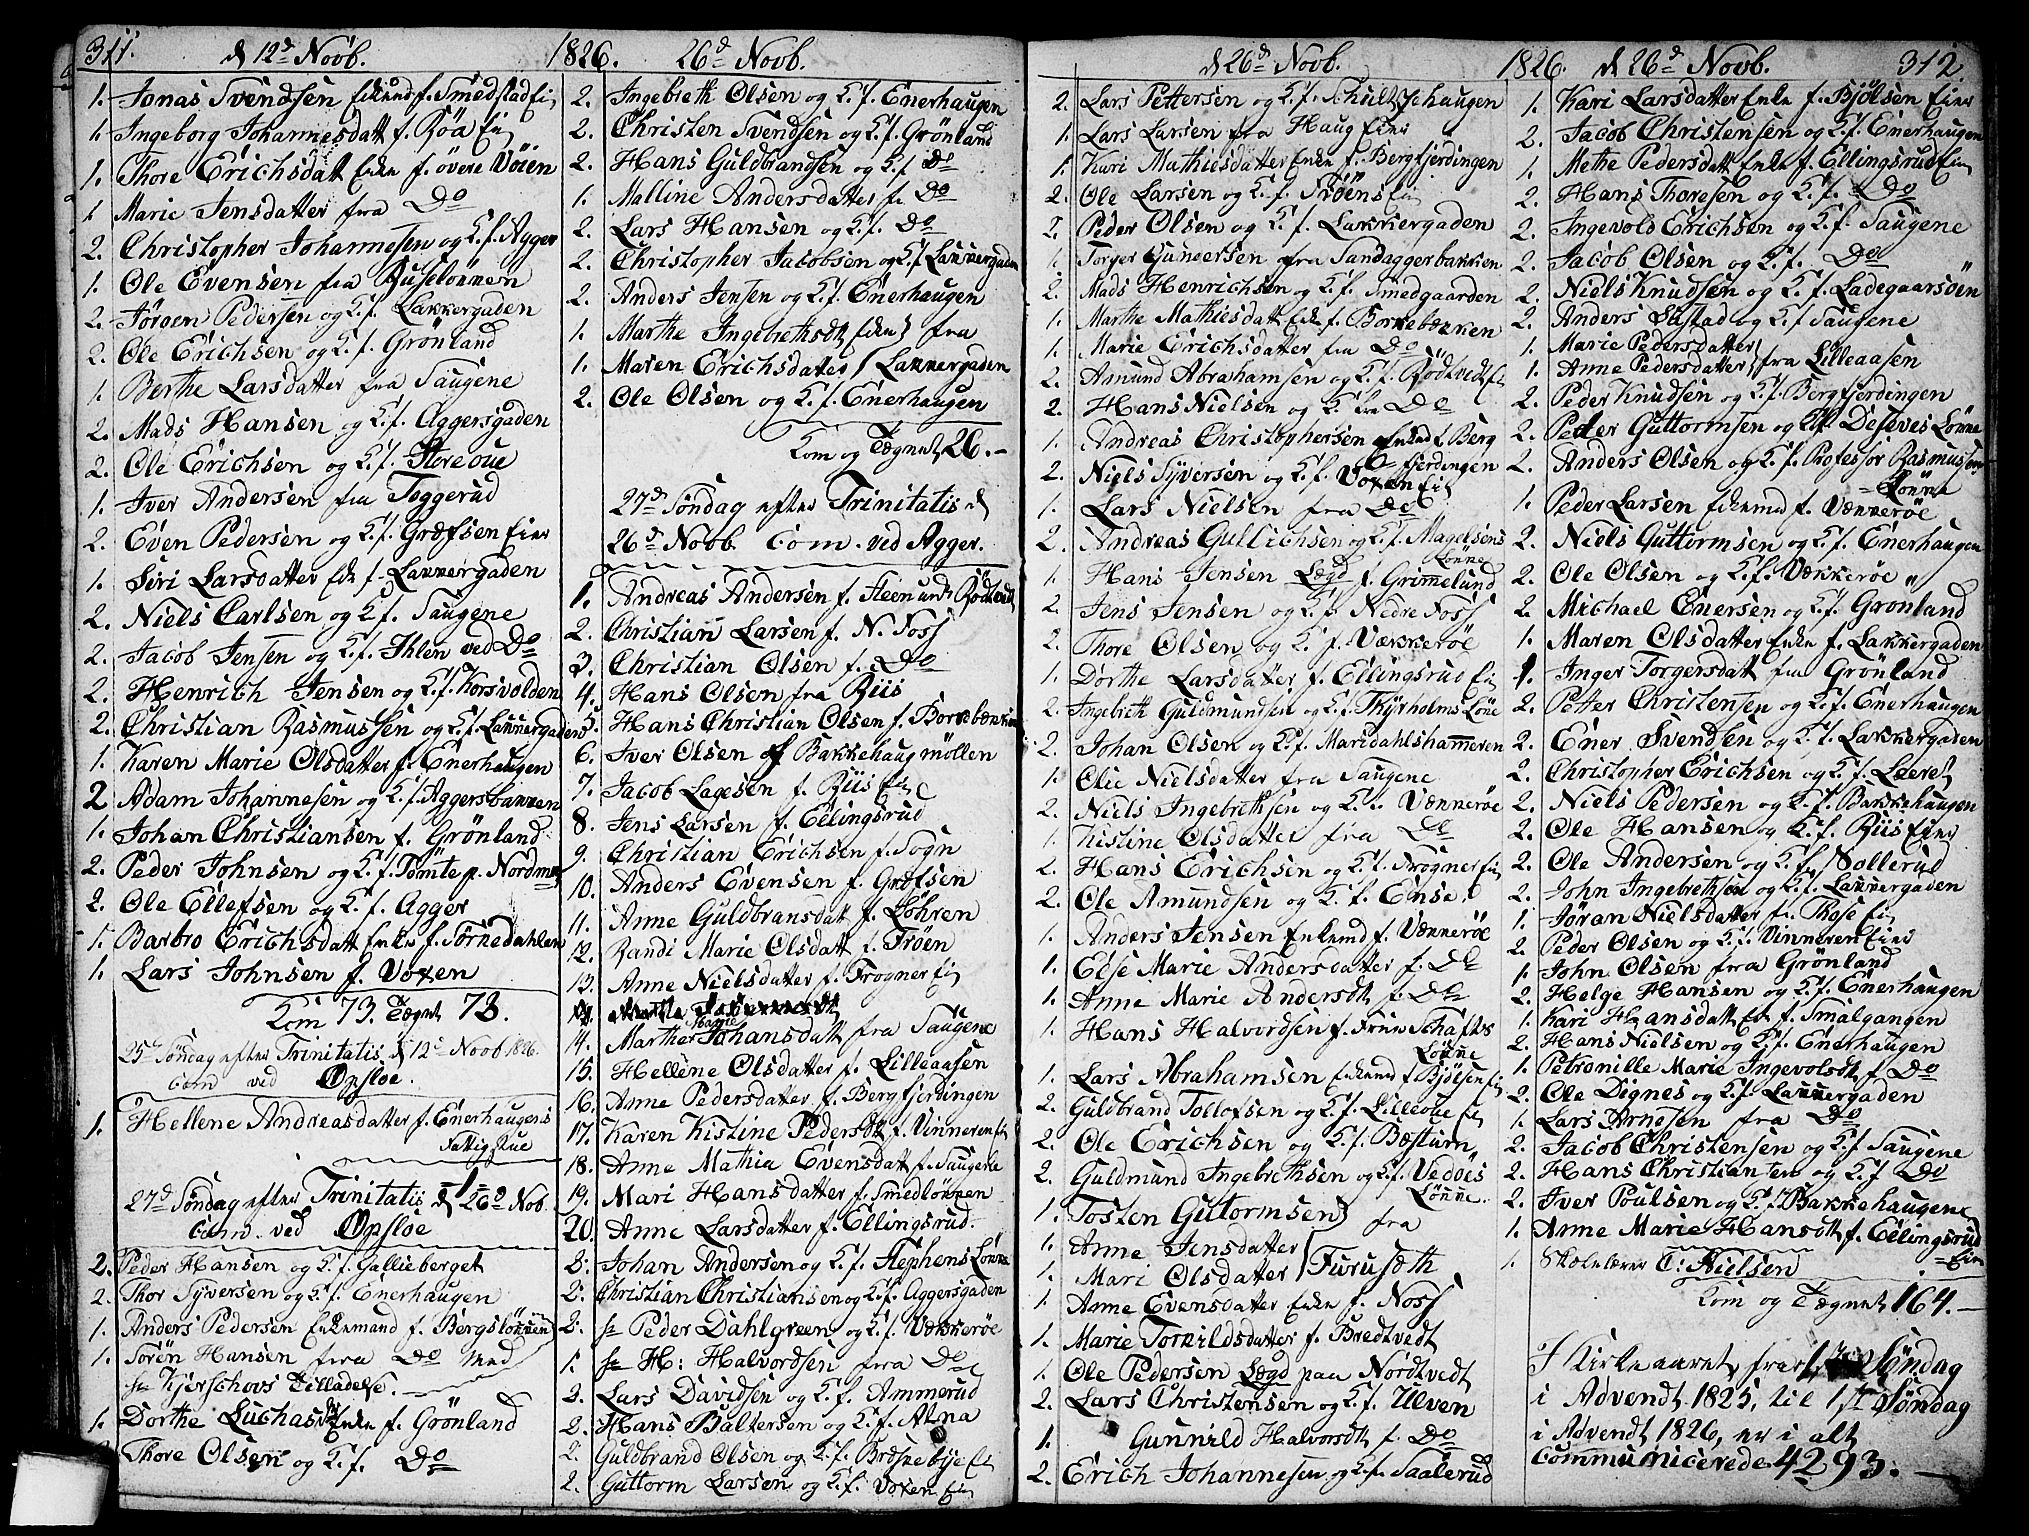 311.
d 12te Novb. 1826.
1. Jonas Svendsen Enkemd f. Smedstad Ei
1. Ingeborg Johannesdatt f. Röa Ei
1. Thore Erichsdatt Enke f. övere Vöien
1. Marie Jensdatter fra Do
2. Christopher Johannesen og K. f. Agger
1. Ole Evensen fra Ruselönnen
2. Jörgen Pedersen og K. f. Lakkergaden
2. Ole Erichsen og K. f. Grönland
1. Berthe Larsdatter fra Saugene
2. Mads Hansen og K. f. Aggersgaden
2. Ole Erichsen og K. f. Store oue
1. Iver Andersen fra Toggerud
2. Even Pedersen og K. f. Græfsen Eier
1. Siri Larsdatter Enk f. Lakkergaden
2. Niels Carlsen og K f. Saugene
2. Jacob Jensen og K. f. Ihlen ved Do
2. Henrich Jensen og K. f. Korsvolden
2. Christian Rasmussen og K. f. Lakkergaden
1. Karen Marie Olsdatter f. Enerhaugen
2 Adam Johannesen og K. f. Aggersbakken
1. Johan Christiansen f. Grönland
2. Peder Johnsen og K. f. Tömte p. Nordm
2. Ole Ellefsen og K. f. Agger
1. Barbro Erichsdatt Enke f. Sörnedahlen
1. Lars Johnsen f. Voxen
Kom 73. Tægnt 73.
25de Söndag efter Trinitatis d 12te Novb 1826.
Com ved Opsloe.
1. Hellene Andreasdatter f. Enerhaugens
Fattigstue
27de Söndag efter Trinitatis d 26de Nob.
Com. ved Opsloe
2. Peder Hansen og K. f. Gallieberget
2. Thor Syversen og K. f. Enerhaugen
1. Anders Pedersen Enkemand f. Bergslökken
1. Sörën Hansen fra Do med
Hr Kjerschovs Tilladelse.
1. Dorthe Luchasdt Enke f. Grönland
Thore Olsen og K. f. Do
26d Novb.
2. Ingebreth Olsen og K. f. Enerhaugen
2. Christen Svendsen og K. f. Grönland
2. Hans Guldbrandsen og K. f Do
1. Malline Andersdatter f. Do
2. Lars Hansen og K. f. Do
2. Christopher Jacobsen og K f Lakkergaden
2. Anders Jensen og K. f. Enerhaugen
1. Marthe Ingebrethsdt Enke fra
1. Maren Erichsdatter Lakkergaden
2. Ole Olsen og K. f. Enerhaugen
Kom og Tægnet 26.
27de Söndag efter Trinitatis d
26de Novb. Com. ved Agger.
1. Andreas Andersen f. Steen und Rödtvedt
2. Christian Larsen f. N. Foss
3. Christian Olsen f. Do
4. Hans Olsen fra Riis
5. Hans Christian Olsen f. Borrebækken
6. Iver Olsen f Bakkehaugmöllen
7. Jacob Lagesen f. Riis Ei
8. Jens Larsen f. Ellingsrud
9. Christian Erichsen f. Sogn
10. Anders Evensen f. Græfsen
11. Anne Guldbransdatt f. Lohren
12. Randi Marie Olsdatt f. Tröen
13. Anne Nielsdatter f. Frogner Ei
14. Marthe Marie Johansdatt fra Saugene
15. Hellene Olsdatter f. Lilleaasen
16. Anne Pedersdatter f. Bergfjerdingen
17. Karen Kistine Pedersdtt f. Vinneren Ei
18. Anne Mathia Evensdatt f. Saugene
19. Mari Hansdatter f. Smedlökken
20. Anne Larsdatter f. Ellingsrud.
2. Johan Andersen og K. f. Stephens Lökke
2. Christian Christiansen og K. f. Aggersgaden
2. Hr Peder Dahlgreen og K. f. Vækkeröe
1. Hr H: Halvordsen fra Do
2. Lars Davidsen og K. f. Ammerud
2. Hans Baltersen og K. f. Alna
2. Guldbrand Olsen og K. f. Ei
2. Guttorm Larsen og K. f. Voxen Ei
d 26de Novb. 1826.
2. Lars Pettersen og K. f. Schultzehaugen
1. Lars Larsen fra Haug Eier
1. Kari Mathiesdatter Enke f. Bergfjerdingen
2. Ole Larsen og K. f. Tröens Ei
2. Peder Olsen og K. f. Lakkergaden
1. Torger Gundersen fra Sandaggerbakken
2. Mads Henrichsen og K. f. Smedgaarden
1. Marthe Mathiesdatt Enke f. Borrebækken
1. Marie Erichsdatter fra Do
2. Amund Abrahamsen og K. f. Rödtvedt Ei
2. Hans Nielsen og K. fra Do
1. Andreas Christophersen Enkemd f. Berg
fjerdingen
2. Niels Syversen og K. f. Voxen Ei
1. Lars Nielsen fra Do
2. Andreas Gullichsen og K. f. Magelsens
Lökke
1. Hans Jensen Lægd f. Grimelund
2. Jens Jensen og K. f. Nedre Foss
2. Thore Olsen og K. f. Vækkeröe
1. Dorthe Larsdatter f. Ellingsrud Ei
2. Ingebreth Guldmundsen og K. f. Thyrholms Löke
2. Johan Olsen og K. f. Maridahlshammeren
1. Olie Nielsdatter fra Saugene
2. Niels Ingebrethsen og K. f. Vækkeröe
1. Kistine Olsdatter fra Do
2. Hans Erichsen og K. f. Frogner Ei
2. Ole Amundsen og K. f. Ense
1. Anders Jensen Enkemd f. Vækkeröe
1. Else Marie Andersdatter f. Do
1. Anne Marie Andersdt f. Do
1. Hans Halvordsen f. Frue Schäftes
Lökke
1. Lars Abrahamsen Enkemd f Bjölsen Ei
2. Guldbrand Tollofsen og K. f. Lilleoue Ei
2. Ole Erichsen og K. f. Bæstum
2. Guldmund Ingebrethsen og K. f. Vedöes
Lökke.
1. Tosten Gutormsen fra
1. Anne Jensdatter
1. Mari Olsdatter Furusæth
1. Anne Evensdatter Enke f. Noss
1. Marie Torkildsdatter f. Bredtvedt
1. Ole Pedersen Lægd paa Nordtvedt
2. Lars Christensen og K. f. Ulven
1. Gunnild Halvorsdt f. Do
2. Erich Johannesen og K. f. Saalerud
d 26de Novb. 312.
1. Kari Larsdatter Enke f. Bjölsen Eier
2. Jacob Christensen og K. f. Enerhaugen
1. Methe Pedersdatt Enke f. Ellingsrud Ei
2. Hans Thoresen og K. f. Do
2. Ingevold Erichsen og K. f. Saugene
2. Jacob Olsen og K. f. Do
2. Niels Knudsen og K. f. Ladegaarsöen
2. Anders Lustad og K. f. Saugene
1. Marie Pedersdatter
1. Anne Pedersdatter fra Lilleaasen
2. Peder Knudsen og K. f. Bergfjerdingen
2. Petter Guttormsen og K. f. Deseves Lökke
2. Anders Olsen og K. f. Professor Rasmussens
Lökke
1. Peder Larsen Enkemd f. Vækkeröe
2. Niels Guttormsen og K. f. Enerhaugen
2. Ole Olsen og K. f. Vækkeröe
2. Michael Enersen og K. f. Grönland
1. Maren Olsdatter Enke f. Lakkergaden
1. Inger Torgersdatt fra Grönland
2. Petter Christensen og K. f. Enerhaugen
2. Ener Svendsen og K. f. Lakkergaden
2. Christopher Erichsen og K. f. Læret
2. Niels Pedersen og K. f. Bakkehaugen
2. Ole Hansen og K. f. Riis Eier
2. Ole Andersen og K. f. Sollerud
2. John Ingebrethsen og K. f. Lakkergaden
1. Jöran Nielsdatter fr. Those Ei
2. Peder Olsen og K. f. Vinneren Eier
1. John Olsen fra Grönland
2. Helge Hansen og K. f. Enerhaugen
1. Kari Hansdatt E f. Smalgangen
2. Hans Nielsen og K. f. Enerhaugen
1. Petronille Marie Ingevolsdt f. Do
2. Ole Dignes og K. f. Lakkergaden
1. Lars Arnesen fra Do
2. Jacob Christensen og K. f Saugene
2. Hans Christiansen og K. f Do
2. Iver Poulsen og K. f. Bakkehaugene
1. Anne Marie Hansdt f. Ellingsrud
Eier
1. Skolelærer T: Nielsen
Kom og Tægnet 164.
I Kirkeaaret fra 1ste Söndag
i Advendt 1825, til 1ste Söndag
i Advendt 1826, er i alt
Communicerede 4293.